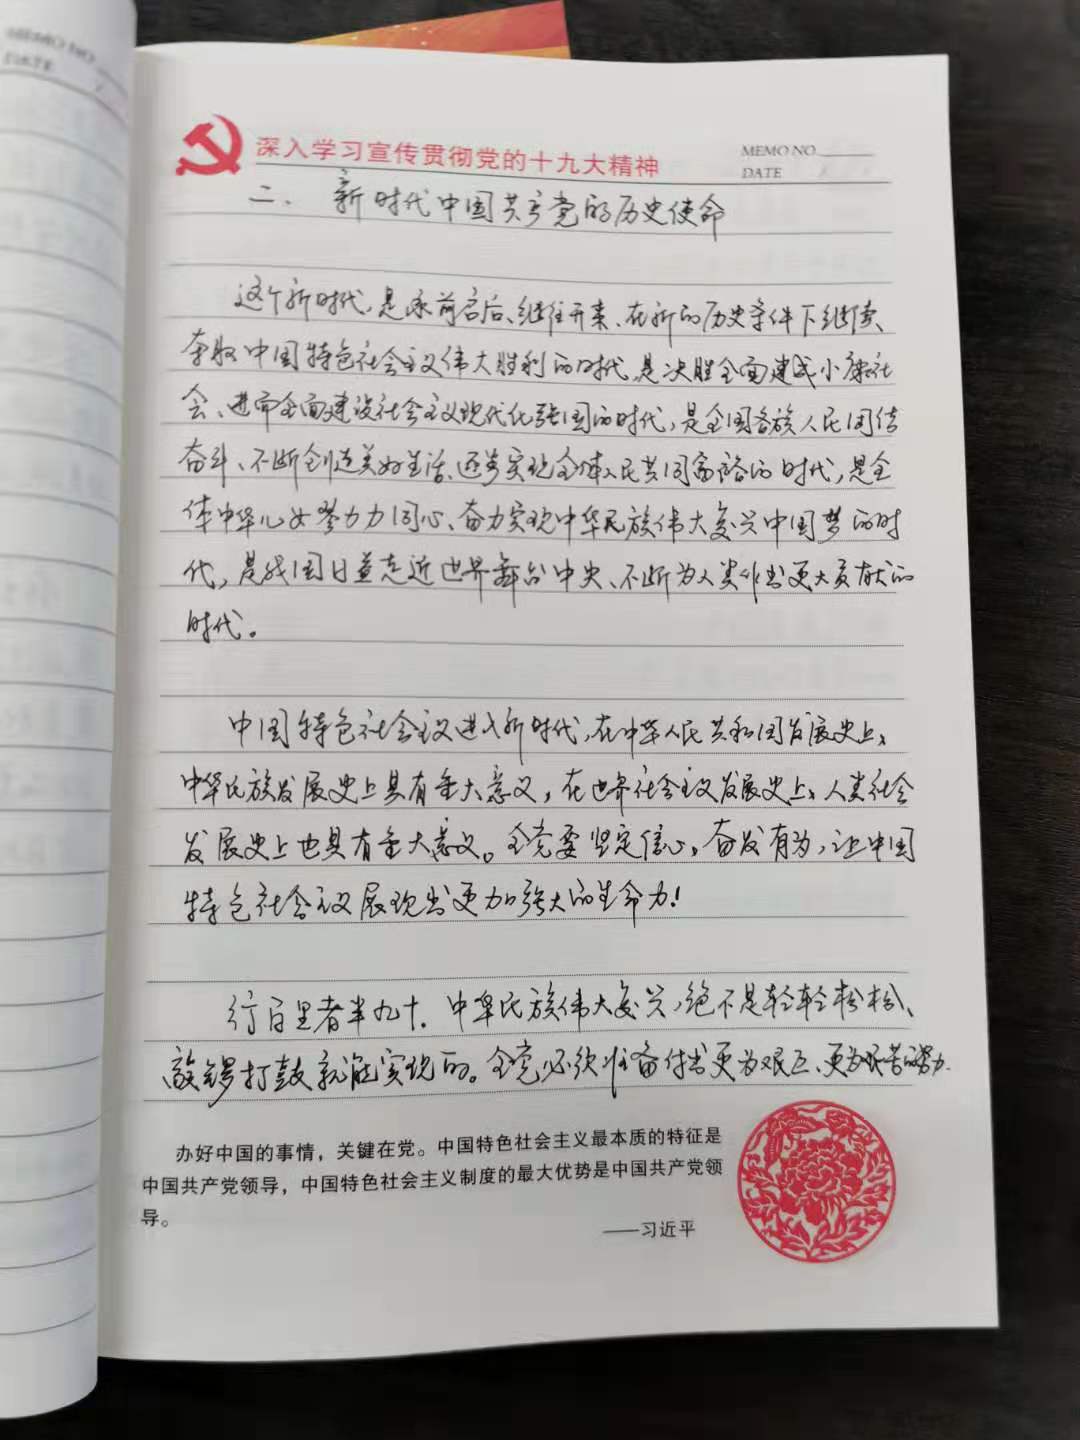 深入学习宣传贯彻党的十九大精神
MEMO NO.
DATE
二、新时代中国共产党的历史使命
这个新时代,是承前启后、继往开来、在新的历史条件下继续
夺取中国特色社会主义伟大胜利的时代,是决胜全面建成小康社
会、进而全面建设社会主义现代化强国的时代,是全国各族人民团结
奋斗、不断创造美好生活、逐步实现全体人民共同富裕的时代,是全
体中华儿女勠力同心、奋力实现中华民族伟大复兴中国梦的时
代,是我国日益走近世界舞台中央、不断为人类作出更大贡献的
时代。
中国特色社会主义进入新时代,在中华人民共和国发展史上、
中华民族发展史上具有重大意义,在世界社会主义发展史上、人类社会
发展史上也具有重大意义。全党要坚定信心,奋发有为,让中国
特色社会主义展现出更加强大的生命力!
行百里者半九十。中华民族伟大复兴,绝不是轻轻松松、
敲锣打鼓就能实现的。全党必须准备付出更为艰巨、更为艰苦的努力.
办好中国的事情,关键在党。中国特色社会主义最本质的特征是
中国共产党领导,中国特色社会主义制度的最大优势是中国共产党领
导。
——习近平